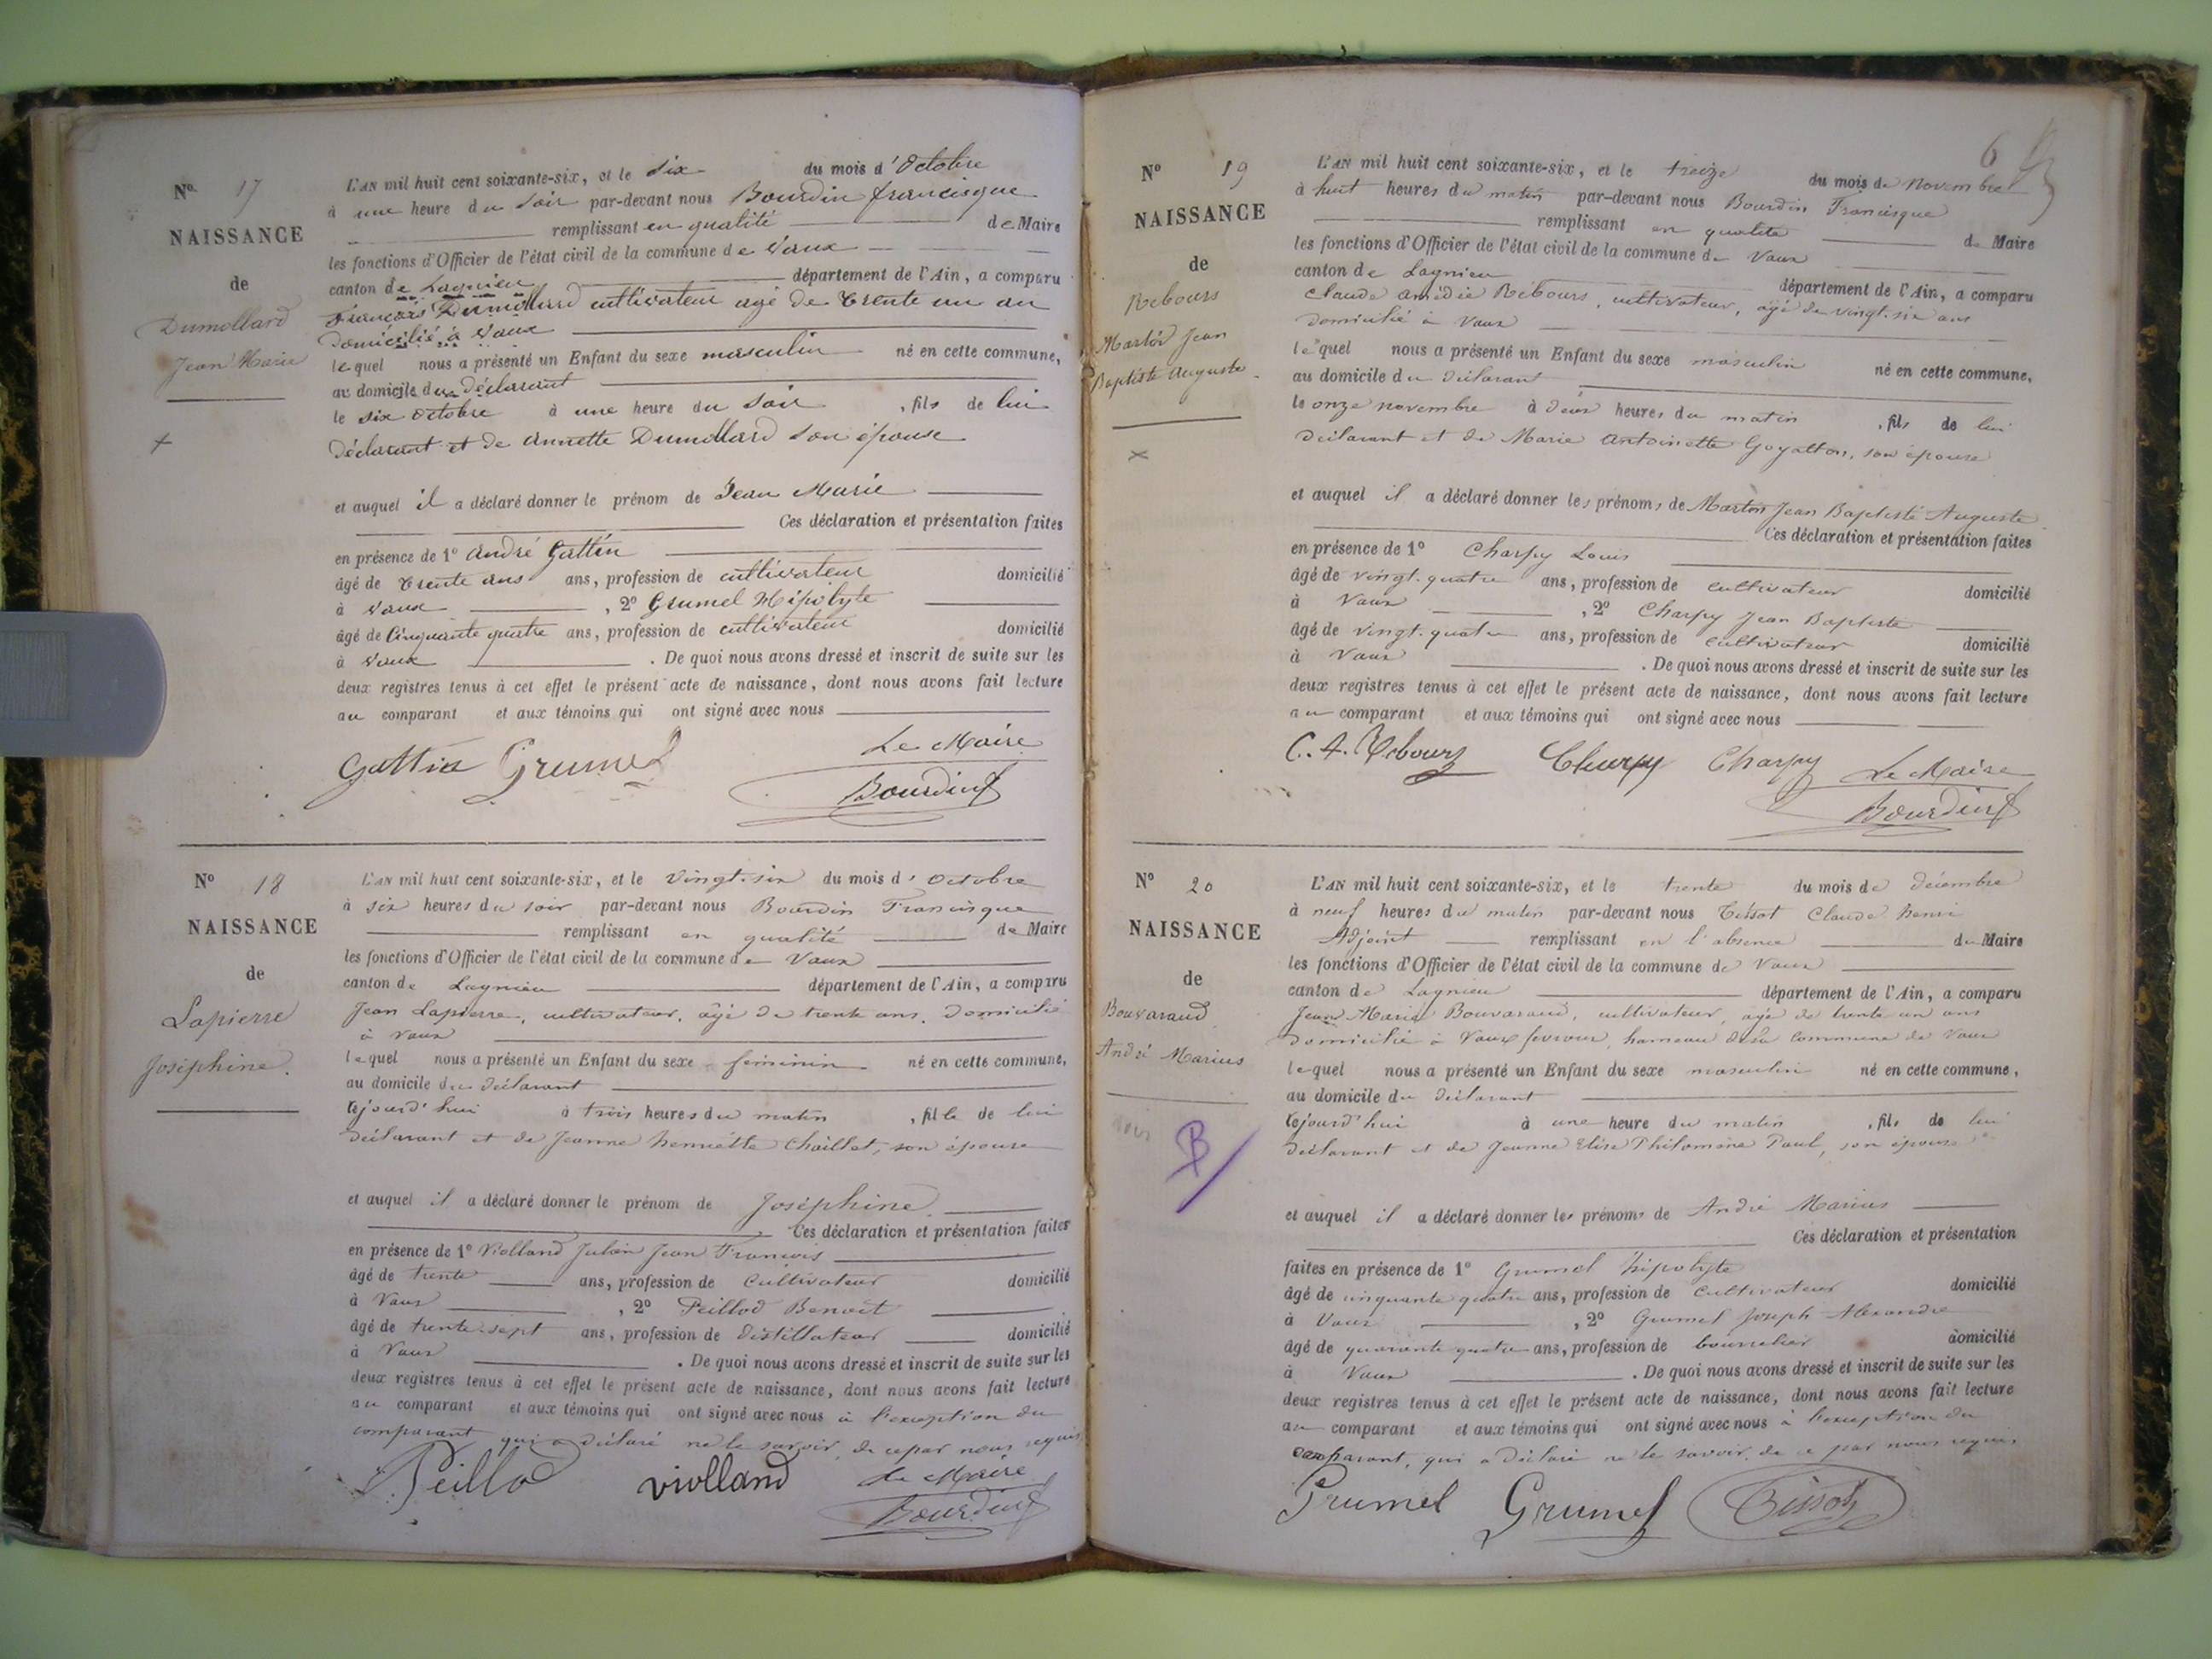 Nº 17
NAISSANCE
de
Dumollard
Jean Marie
L'AN mil huit cent soixante-six, et le six du mois d'Octobre
à une heure du soir par-devant nous Bourdin francisque
remplissant en qualité de Maire
les fonctions d'Officier de l'état civil de la commune de Vaux
canton de Lagnieu département de l'Ain, a comparu
François Dumollard cultivateur agé de trente un an
Domicilié à Vaux
lequel nous a présenté un Enfant du sexe masculin né en cette commune,
au domicile du Déclarant
le six octobre à une heure du soir, fils de lui
Déclarant et de Annette Dumollard son épouse
et auquel il a déclaré donner le prénom de Jean Marie
Ces déclaration et présentation faites
en présence de 1º André Gattin
âgé de trente ans ans, profession de cultivateur domicilié
à Vaux, 2º Grumel Hipolyte
âgé de Cinquante quatre ans, profession de cultivateur domicilié
à Vaux. De quoi nous avons dressé et inscrit de suite sur les
deux registres tenus à cet effet le présent acte de naissance, dont nous avons fait lecture
au comparant et aux témoins qui ont signé avec nous
Gattin Grumel Le Maire
Bourdin f
Nº 18
NAISSANCE
de
Lapierre
Joséphine.
L'AN mil huit cent soixante-six, et le vingt-six du mois d'Octobre
à six heures du soir par-devant nous Bourdin Francisque
remplissant en qualité de Maire
les fonctions d'Officier de l'état civil de la commune de Vaux
canton de Lagnieu département de l'Ain, a comparu
Jean Lapierre, cultivateur, âgé de trente ans, domicilié
à Vaux
lequel nous a présenté un Enfant du sexe féminin né en cette commune,
au domicile du déclarant
cejourd'hui à trois heures du matin, fille de lui
déclarant et de Jeanne henriette Chaillet, son épouse
et auquel il a déclaré donner le prénom de Joséphine
Ces déclaration et présentation faites
en présence de 1º Violland Julien Jean François
âgé de trente ans, profession de Cultivateur domicilié
à Vaux, 2º Peillod Benoit
âgé de trente-sept ans, profession de Distillateur domicilié
à Vaux. De quoi nous avons dressé et inscrit de suite sur les
deux registres tenus à cet effet le présent acte de naissance, dont nous avons fait lecture
au comparant et aux témoins qui ont signé avec nous à l'exception du
comparant qui a déclaré ne le savoir, de ce par nous requis
Peillod violland Le Maire
Bourdin f
6
Nº 19
NAISSANCE
de
Rebours
Jean
Baptiste Auguste
L'AN mil huit cent soixante-six, et le treize du mois de Novembre
à huit heures du matin par-devant nous Bourdin Francisque
remplissant en qualité de Maire
les fonctions d'Officier de l'état civil de la commune de Vaux
canton de Lagnieu département de l'Ain, a comparu
Claude Amédée Rebours, cultivateur, âgé de vingt-six ans
domicilié à Vaux
lequel nous a présenté un Enfant du sexe masculin né en cette commune,
au domicile du déclarant
le onze novembre à deux heures du matin, fils de lui
déclarant et de Marie Antoinette Goyatton, son épouse
et auquel il a déclaré donner les prénoms de Jean Baptiste Auguste
Ces déclaration et présentation faites
en présence de 1º Charpy Louis
âgé de vingt-quatre ans, profession de cultivateur domicilié
à Vaux, 2º Charpy Jean Baptiste
âgé de vingt-quatre ans, profession de Cultivateur domicilié
à Vaux. De quoi nous avons dressé et inscrit de suite sur les
deux registres tenus à cet effet le présent acte de naissance, dont nous avons fait lecture
au comparant et aux témoins qui ont signé avec nous
C. A. Rebours Charpy Charpy Le Maire
Bourdin f
Nº 20
NAISSANCE
de
Bouvaraud
André Marius
B
L'AN mil huit cent soixante-six, et le trente du mois de décembre
à neuf heures du matin par-devant nous Tissot Claude henri
Adjoint remplissant en l'absence du Maire
les fonctions d'Officier de l'état civil de la commune de Vaux
canton de Lagnieu département de l'Ain, a comparu
Jean Marie Bouvaraud, cultivateur, âgé de trente un ans
domicilié à Vaux fevroux, hameau de la Commune de Vaux
lequel nous a présenté un Enfant du sexe masculin né en cette commune,
au domicile du déclarant
cejourd'hui à une heure du matin, fils de lui
déclarant et de Jeanne Elise Philomène Paul, son épouse
et auquel il a déclaré donner les prénoms de André Marius
Ces déclaration et présentation
faites en présence de 1º Grumel hipolyte
âgé de cinquante quatre ans, profession de Cultivateur domicilié
à Vaux, 2º Grumel Joseph Alexandre
âgé de quarante quatre ans, profession de bourrelier domicilié
à Vaux. De quoi nous avons dressé et inscrit de suite sur les
deux registres tenus à cet effet le présent acte de naissance, dont nous avons fait lecture
au comparant et aux témoins qui ont signé avec nous à l'exception du
comparant, qui a déclaré ne le savoir, de ce par nous requis
Grumel Grumel Tissot